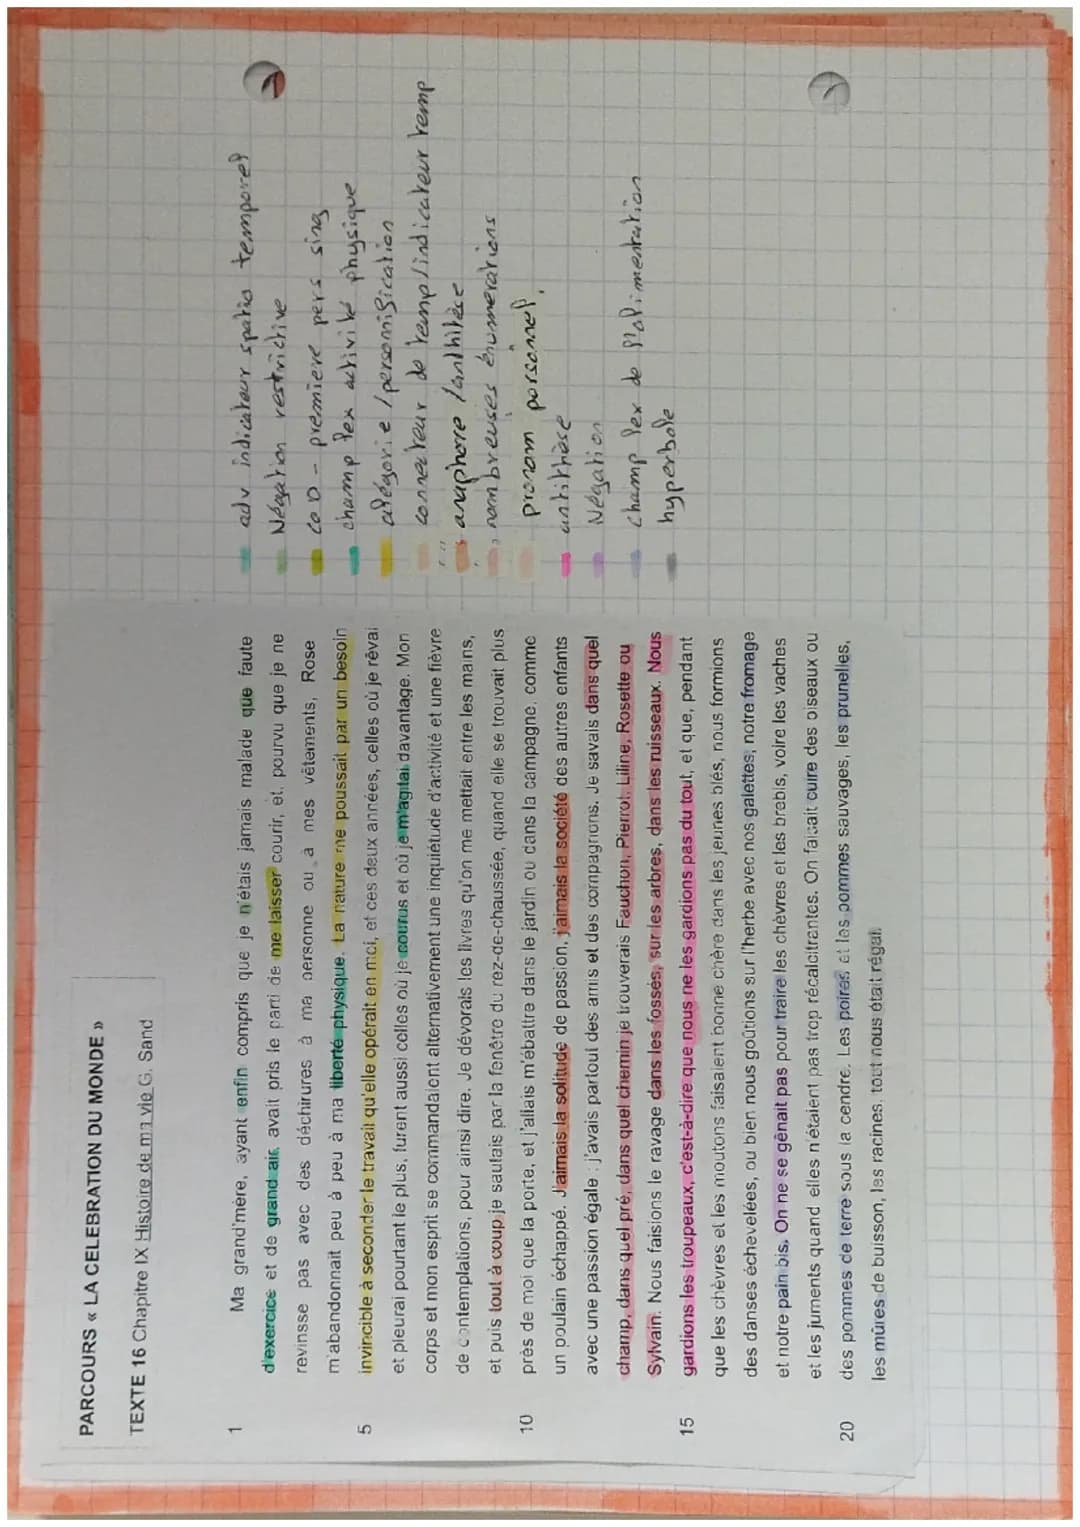 PARCOURS « LA CELEBRATION DU MONDE »
TEXTE 16 Chapitre IX Histoire de ma vie G. Sand
1 Ma grand'mère, ayant enfin compris que je n'étais jamais malade que faute
d'exercice et de grand air, avait pris le parti de me laisser courir, et, pourvu que je ne
revinsse pas avec des déchirures à ma personne ou à mes vêtements, Rose
m'abandonnait peu à peu à ma liberté physique. La nature me poussait par un besoin
5 invincible à seconder le travail qu'elle opérait en moi, et ces deux années, celles où je rêvai
et pleurai pourtant le plus, furent aussi celles où je courus et où je m'agitai davantage. Mon
corps et mon esprit se commandaient alternativement une inquiétude d'activité et une fièvre
de contemplations, pour ainsi dire. Je dévorais les livres qu'on me mettait entre les mains,
et puis tout à coup je sautais par la fenêtre du rez-de-chaussée, quand elle se trouvait plus
10 près de moi que la porte, et j'allais m'ébattre dans le jardin ou dans la campagne, comme
un poulain échappé. J'aimais la solitude de passion, j'aimais la société des autres enfants
avec une passion égale : j'avais partout des amis et des compagnons. Je savais dans quel
champ, dans quel pré, dans quel chemin je trouverais Fauchon, Pierrot, Liline, Rosette ou
Sylvain. Nous faisions le ravage dans les fossés, sur les arbres, dans les ruisseaux. Nous
15 gardions les troupeaux, c'est-à-dire que nous ne les gardions pas du tout, et que, pendant
que les chèvres et les moutons faisaient bonne chère dans les jeunes blés, nous formions
des danses échevelées, ou bien nous goûtions sur l'herbe avec nos galettes, notre fromage
et notre pain bis. On ne se gênait pas pour traire les chèvres et les brebis, voire les vaches
et les juments quand elles n'étaient pas trop récalcitrantes. On faisait cuire des oiseaux ou
20 des pommes de terre sous la cendre. Les poires et les pommes sauvages, les prunelles,
les mûres de buisson, les racines, tout nous était régal.
adv indicateur spatio temporel
Négation restrictive
COD - premiere pers sing
champ lex activité physique
alégorie / personnification
connecteur de temp/indicateur temp
anaphore / antithèse
nombreuses énumerations
pronom personnel
antithèse
Négation
champ lex de l'alimentation
hyperbole